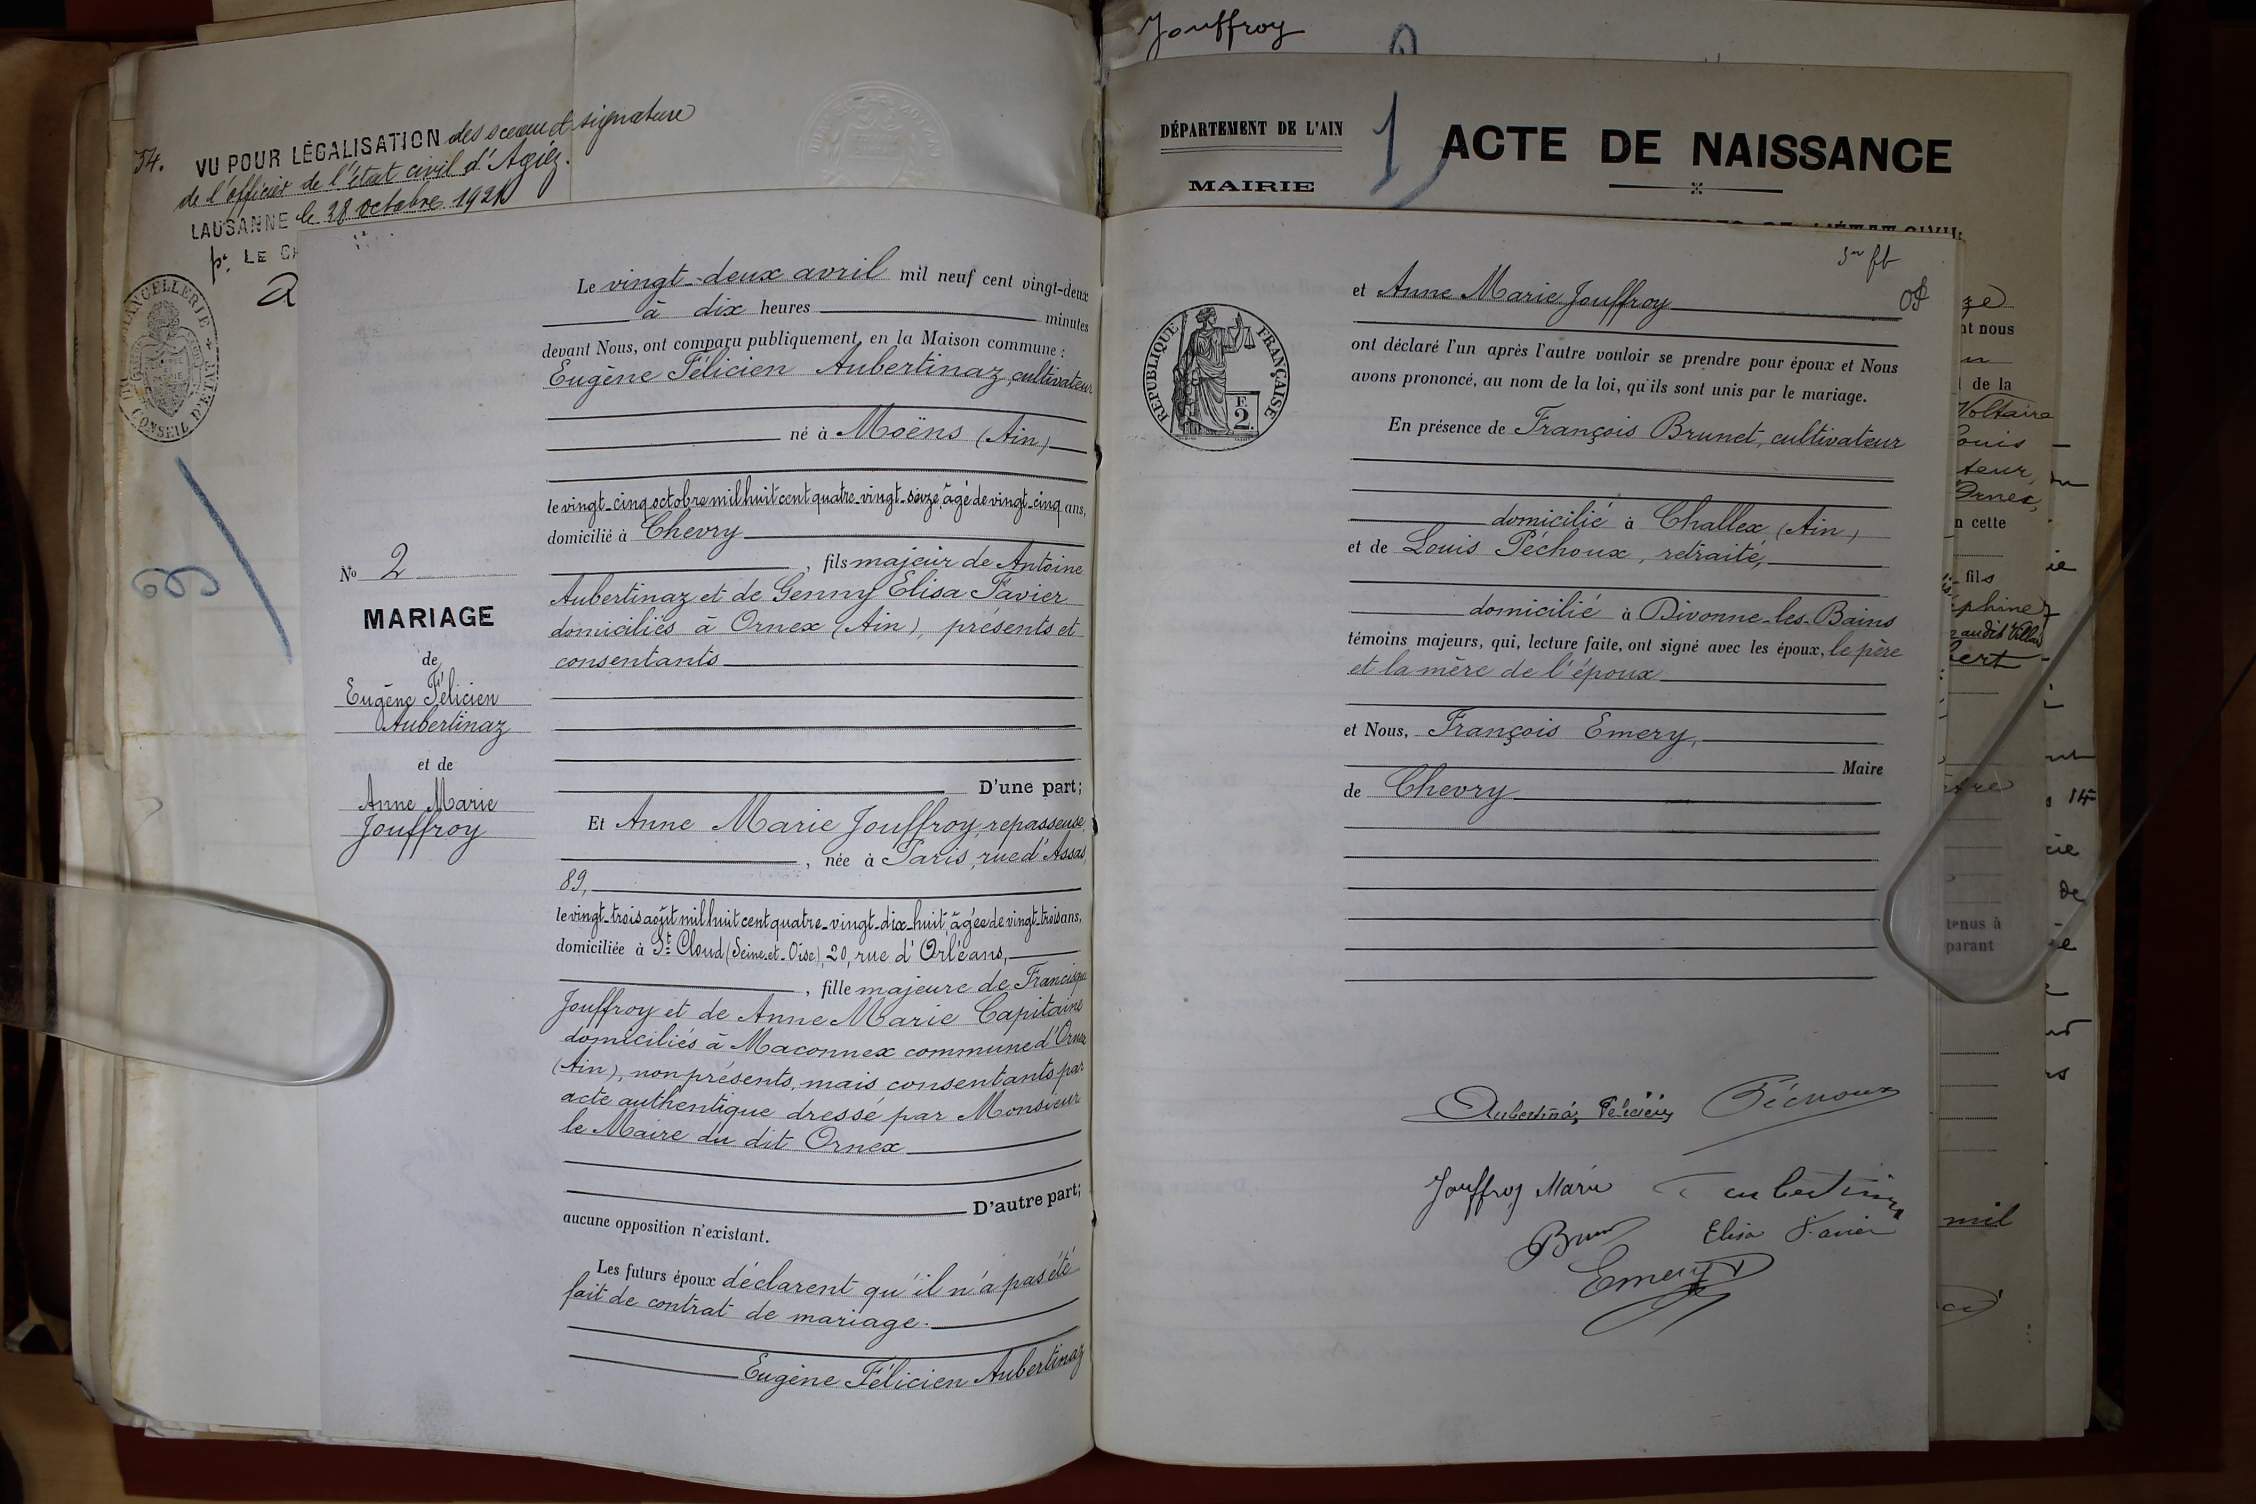 54. VU POUR LÉGALISATION des sceau et signature
de l'officier de l'état civil d'Agiez.
LAUSANNE le 28 octobre 1921
pr. LE
CHANCELLERIE
CONSEIL D'ETAT
No 2
MARIAGE
de
Eugène Félicien
Aubertinaz
et de
Anne Marie
Jouffroy
Le vingt-deux avril mil neuf cent vingt-deux
à dix heures minutes
devant Nous, ont comparu publiquement, en la Maison commune :
Eugène Félicien Aubertinaz, cultivateur
né à Moëns (Ain)
le vingt-cinq octobre mil huit cent quatre-vingt-seize, âgé de vingt-cinq ans,
domicilié à Chevry
, fils majeur de Antoine
Aubertinaz et de Genny Elisa Favier
domiciliés à Ornex (Ain), présents et
consentants
D'une part;
Et Anne Marie Jouffroy, repasseuse,
, née à Paris, rue d'Assas,
89,
le vingt-trois août mil huit cent quatre-vingt-dix-huit, âgée de vingt-trois ans,
domiciliée à St Cloud (Seine-et-Oise), 20, rue d'Orléans,
, fille majeure de Francisque
Jouffroy et de Anne Marie Capitaine
domiciliés à Maconnex commune d'Ornex
(Ain), non présents, mais consentants par
acte authentique dressé par Monsieur
le Maire du dit Ornex
D'autre part;
aucune opposition n'existant.
Les futurs époux déclarent qu'il n'a pas été
fait de contrat de mariage.
Eugène Félicien Aubertinaz
Jouffroy
DÉPARTEMENT DE L'AIN
MAIRIE
1
ACTE DE NAISSANCE
RÉPUBLIQUE FRANÇAISE
2
et Anne Marie Jouffroy
ont déclaré l'un après l'autre vouloir se prendre pour époux et Nous
avons prononcé, au nom de la loi, qu'ils sont unis par le mariage.
En présence de François Brunet, cultivateur
domicilié à Challex (Ain)
et de Louis Péchoux, retraité,
domicilié à Divonne-les-Bains
témoins majeurs, qui, lecture faite, ont signé avec les époux, le père
et la mère de l'époux
et Nous, François Emery,
Maire
de Chevry
Aubertinaz Félicien Péchoux
Jouffroy Marie Aubertinaz
Brunet Elisa Favier
Emery
nt nous
de la
Voltaire
Louis
teur,
Ornex,
n cette
fils
tenus à
parant
14
de
mil